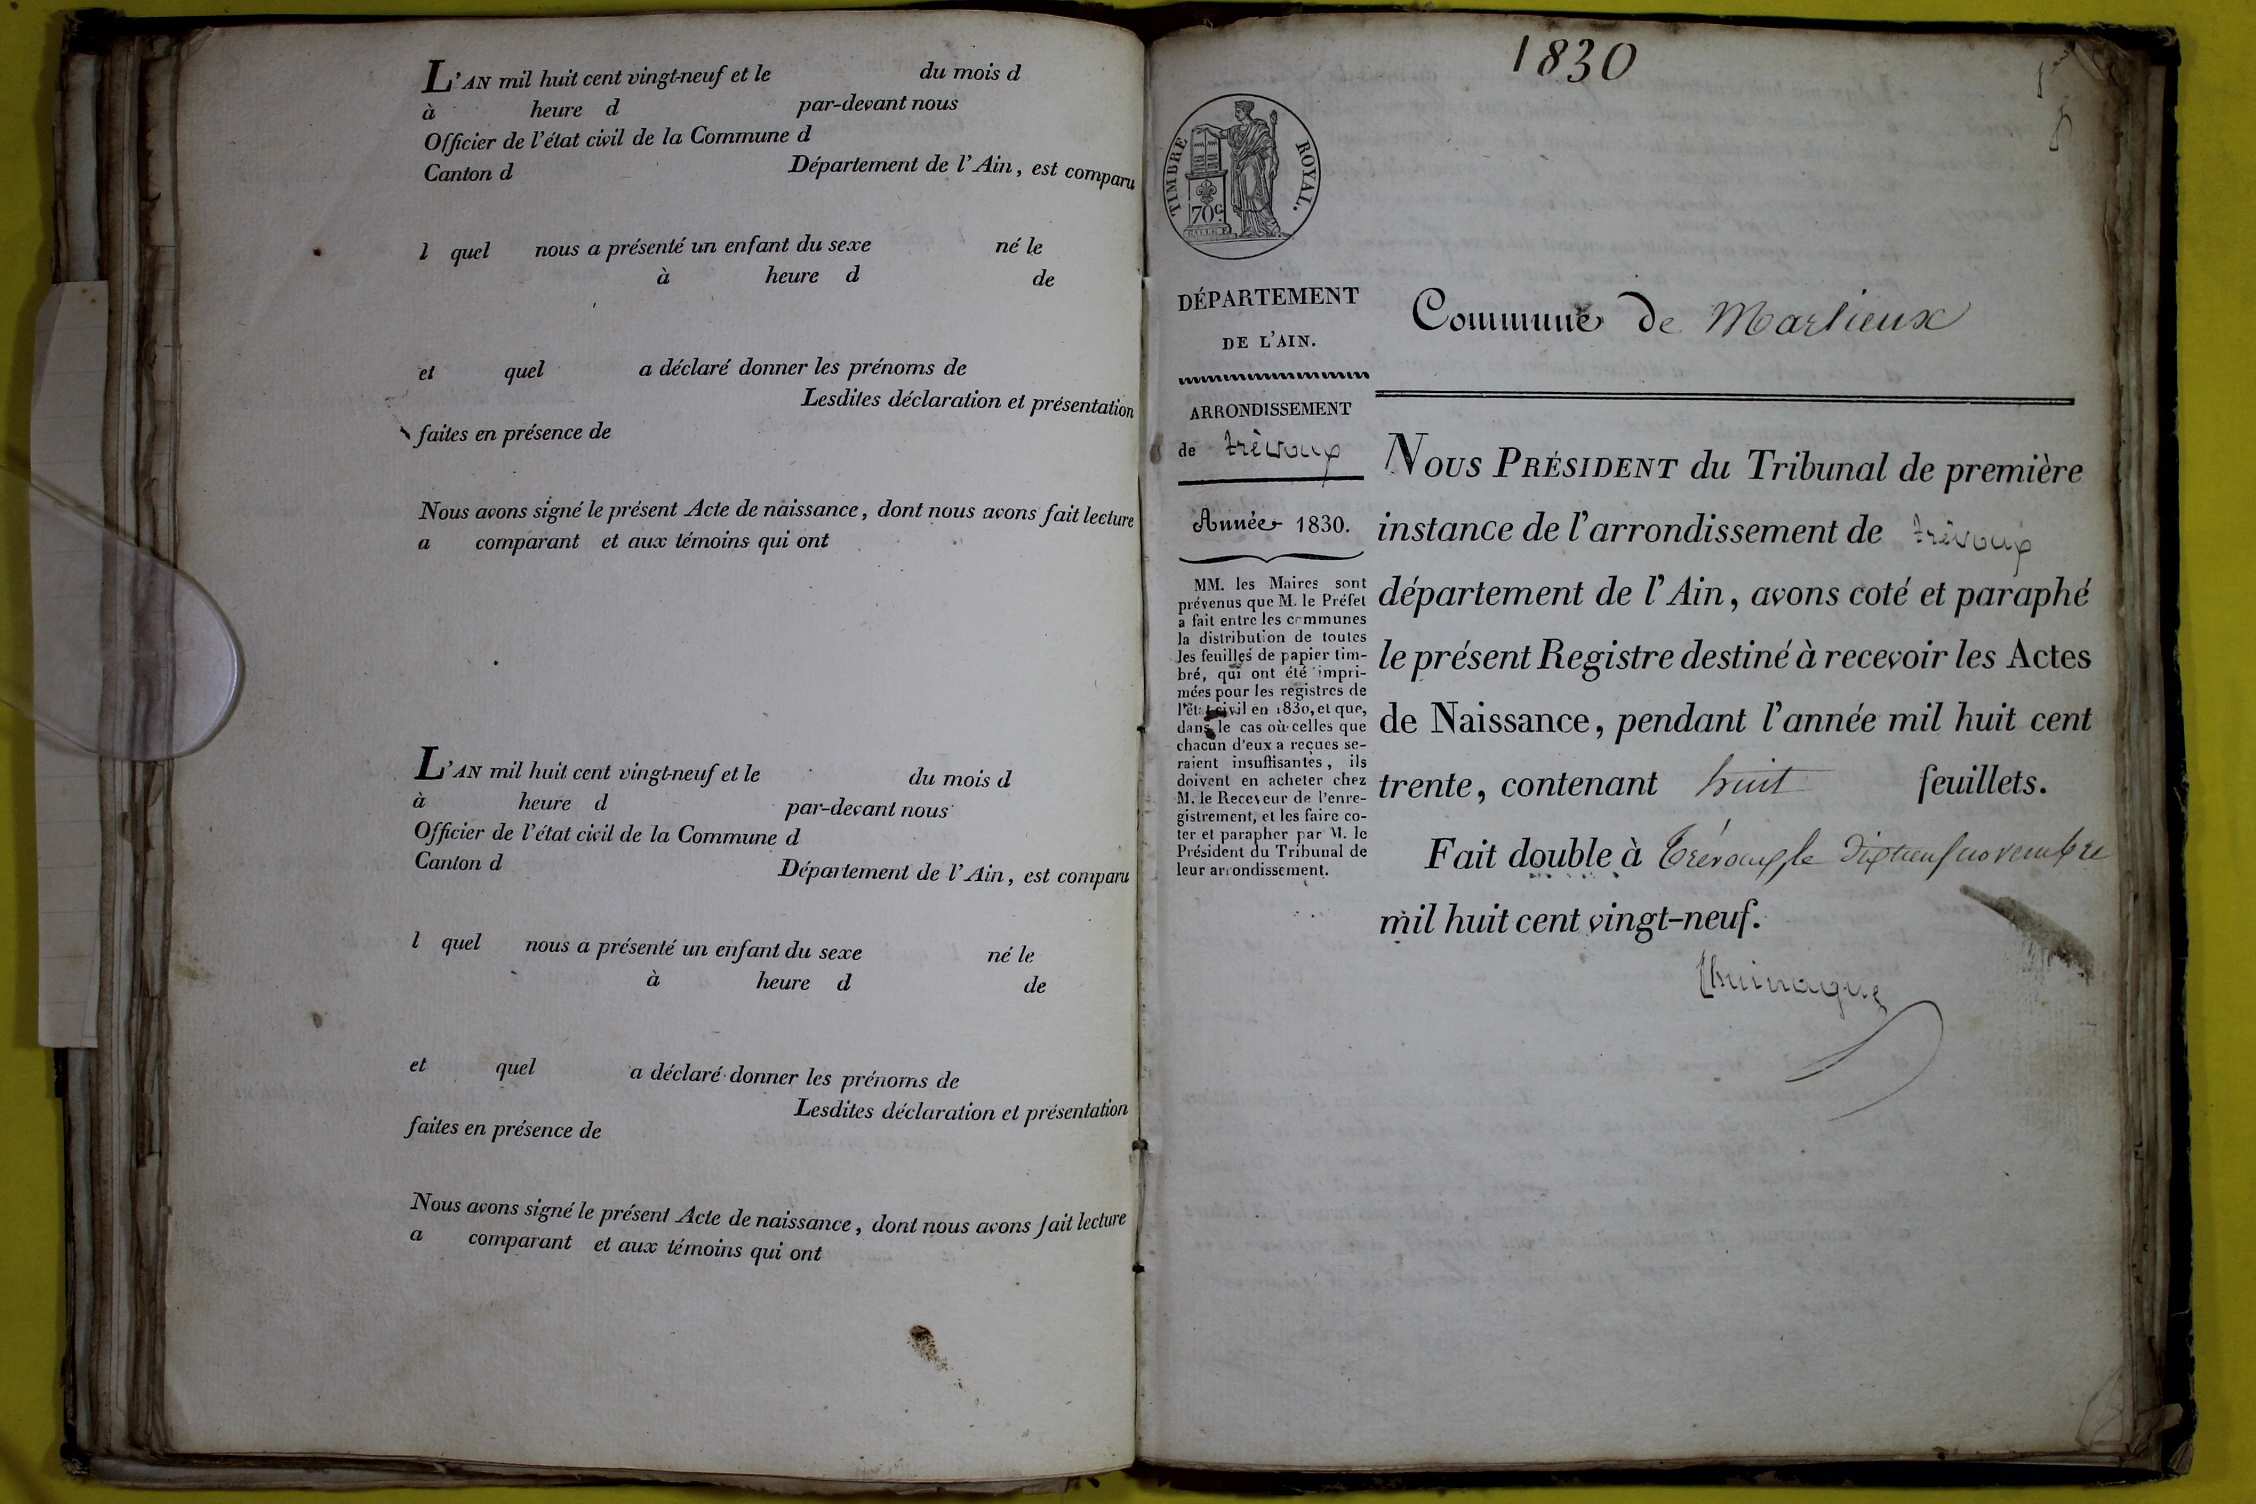 L'AN mil huit cent vingt-neuf et le du mois d
à heure d par-devant nous
Officier de l'état civil de la Commune d
Canton d Département de l'Ain, est comparu
l quel nous a présenté un enfant du sexe né le
à heure d de
et quel a déclaré donner les prénoms de
Lesdites déclaration et présentation
faites en présence de
Nous avons signé le présent Acte de naissance, dont nous avons fait lecture
a comparant et aux témoins qui ont
L'AN mil huit cent vingt-neuf et le du mois d
à heure d par-devant nous
Officier de l'état civil de la Commune d
Canton d Département de l'Ain, est comparu
l quel nous a présenté un enfant du sexe né le
à heure d de
et quel a déclaré donner les prénoms de
Lesdites déclaration et présentation
faites en présence de
Nous avons signé le présent Acte de naissance, dont nous avons fait lecture
a comparant et aux témoins qui ont
1830
TIMBRE ROYAL.
70 c.
DÉPARTEMENT
DE L'AIN.
ARRONDISSEMENT
de trévoux
Année 1830.
MM. les Maires sont
prévenus que M. le Préfet
a fait entre les communes
la distribution de toutes
les feuilles de papier tim-
bré, qui ont été impri-
mées pour les registres de
l'état civil en 1830, et que,
dans le cas où celles que
chacun d'eux a reçues se-
raient insuffisantes, ils
doivent en acheter chez
M. le Receveur de l'enre-
gistrement, et les faire co-
ter et parapher par M. le
Président du Tribunal de
leur arrondissement.
Commune de Marlieux
NOUS PRÉSIDENT du Tribunal de première
instance de l'arrondissement de trévoux
département de l'Ain, avons coté et paraphé
le présent Registre destiné à recevoir les Actes
de Naissance, pendant l'année mil huit cent
trente, contenant huit feuillets.
Fait double à Trévoux le dix neuf novembre
mil huit cent vingt-neuf.